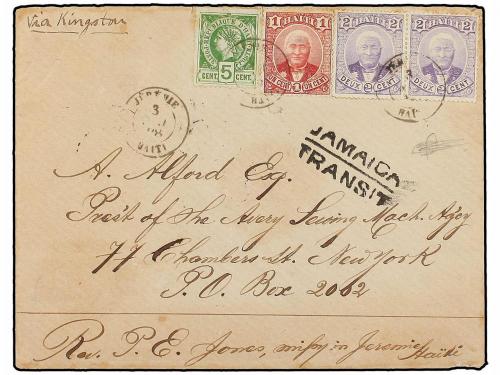 Via Kingston
RÉPUBLIQUE D'HAÏTI
CENT. 5 CENT.
1 HAITI 1
UN CENT 1 UN CENT
2 HAITI 2
DEUX 2 CENT
2 HAITI 2
DEUX 2 CENT
JÉRÉMIE
3
HAITI
JAMAICA
TRANSIT
A. Alford Esq.
Prest of the Avery Sewing Mach. Agcy
77 Chambers st. New York
P.O. Box 2062
Rev. P. E. Jones, missy in Jeremie
Haiti